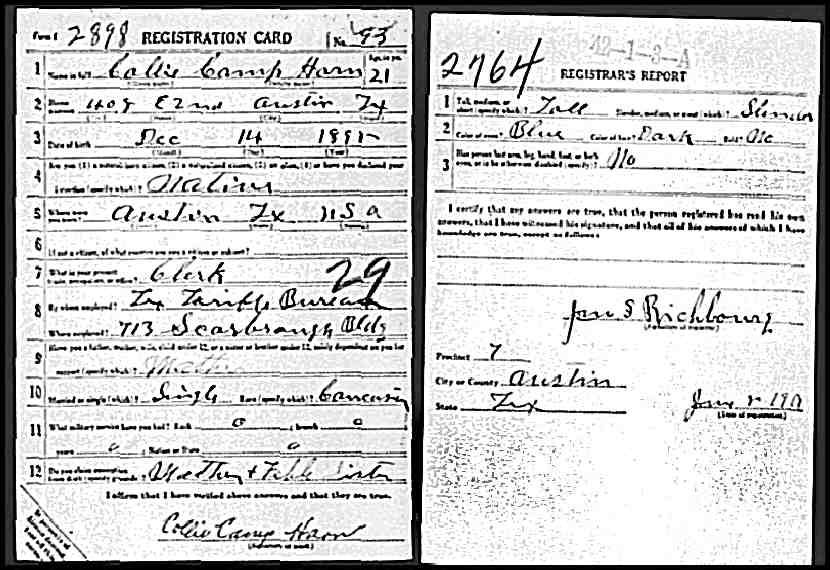 Form 1 2898 REGISTRATION CARD No. 93
1 Name in full Collie Camp Horn Age, in yrs. 21
2 Home address 409 E 2nd Austin Tx
3 Date of birth Dec 14 1895
(Month) (Day) (Year)
4 Are you (1) a natural-born citizen, (2) a naturalized citizen, (3) an alien, (4) or have you declared your
intention (specify which)? Native
5 Where were you born? Austin Tx USA
6 If not a citizen, of what country are you a citizen or subject?
7 What is your present trade, occupation, or office? Clerk 29
8 By whom employed? Tx Tariff Bureau
Where employed? 713 Scarbrough Bldg
9 Have you a father, mother, wife, child under 12, or a sister or brother under 12, solely dependent on you for
support (specify which)? Mother
10 Married or single (which)? Single Race (specify which)? Caucasian
11 What military service have you had? Rank o ; branch o
years o ; Nation or State o
12 Do you claim exemption from draft (specify grounds)? Mother +
I affirm that I have verified above answers and that they are true.
Collie Camp Horn
(Signature or mark)
2764 42-1-3-A
REGISTRAR'S REPORT
1 Tall, medium, or short (specify which)? Tall Slender, medium, or stout (which)? Slender
2 Color of eyes? Blue Color of hair? Dark Bald? No
3 Has person lost arm, leg, hand, foot, or both eyes, or is he otherwise disabled (specify)? No
I certify that my answers are true, that the person registered has read his own
answers, that I have witnessed his signature, and that all of his answers of which I have
knowledge are true, except as follows:
Jno S Richbourg
(Signature of registrar)
Precinct 7
City or County Austin
State Tx
(Date of registration)